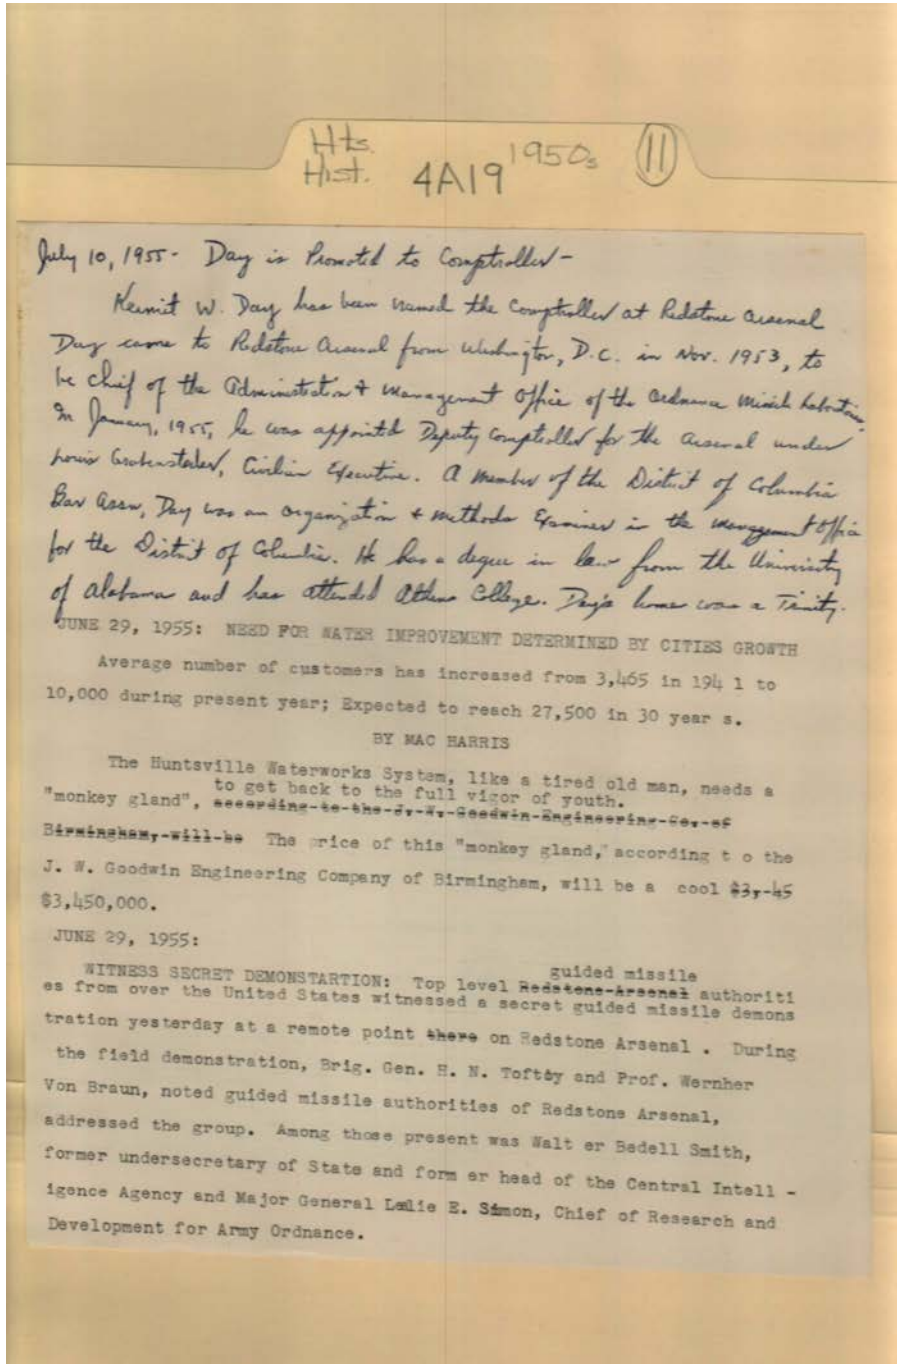 Hts.
Hist. 4A19 1950s 11
July 10, 1955 - Day is Promoted to Comptroller -
Kermit W. Day has been named the Comptroller at Redstone Arsenal
Day came to Redstone Arsenal from Washington, D.C. in Nov. 1953, to
be chief of the Administration & Management Office of the Ordnance Missile Laboratories.
In January, 1955, he was appointed Deputy Comptroller for the Arsenal under
Louis Civilian Executive. A member of the District of Columbia
Bar Assn, Day was an organization & methods Examiner in the management Office
for the District of Columbia. He has a degree in law from the University
of Alabama and has attended Athens College. Day's home was a Trinity.
JUNE 29, 1955: NEED FOR WATER IMPROVEMENT DETERMINED BY CITIES GROWTH
Average number of customers has increased from 3,465 in 194 1 to
10,000 during present year; Expected to reach 27,500 in 30 year s.
BY MAC HARRIS
The Huntsville Waterworks System, like a tired old man, needs a
to get back to the full vigor of youth.
"monkey gland", according to the J. W. Goodwin Engineering Co. of
Birmingham, will be The price of this "monkey gland," according t o the
J. W. Goodwin Engineering Company of Birmingham, will be a cool $3,45
$3,450,000.
JUNE 29, 1955:
guided missile
WITNESS SECRET DEMONSTARTION: Top level Redstone Arsenal authoriti
es from over the United States witnessed a secret guided missile demons
tration yesterday at a remote point there on Redstone Arsenal . During
the field demonstration, Brig. Gen. H. N. Toftoy and Prof. Wernher
Von Braun, noted guided missile authorities of Redstone Arsenal,
addressed the group. Among those present was Walt er Bedell Smith,
former undersecretary of State and form er head of the Central Intell -
igence Agency and Major General Leslie E. Simon, Chief of Research and
Development for Army Ordnance.